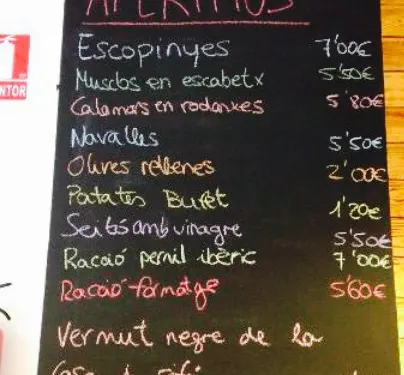 APERITIUS
Escopinyes 7'00€
Musclos en escabetx 5'50€
Calamars en rodanxes 5'80€
Navalles 5'50€
Olives rellenes 2'00€
Patates Buret 1'20€
Seitós amb vinagre 5'50€
Racció pernil ibèric 7'00€
Racció formatge 5'60€
Vermut negre de la
NTOR